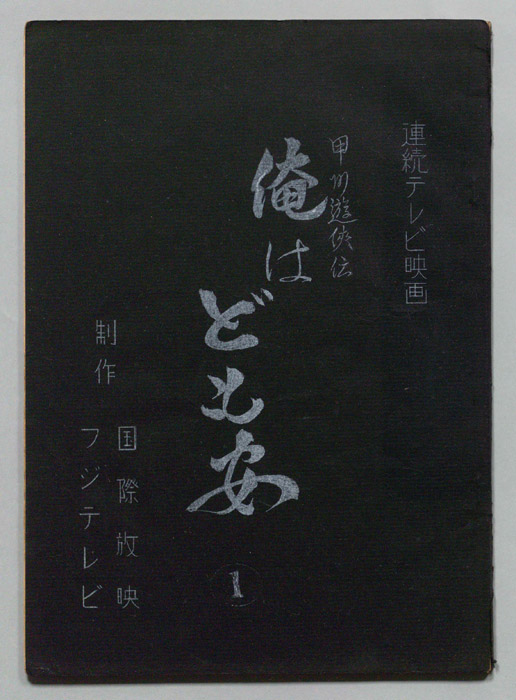 連続テレビ映画
甲州遊俠伝
俺は
ども安
1
制作
国際放映
フジテレビ